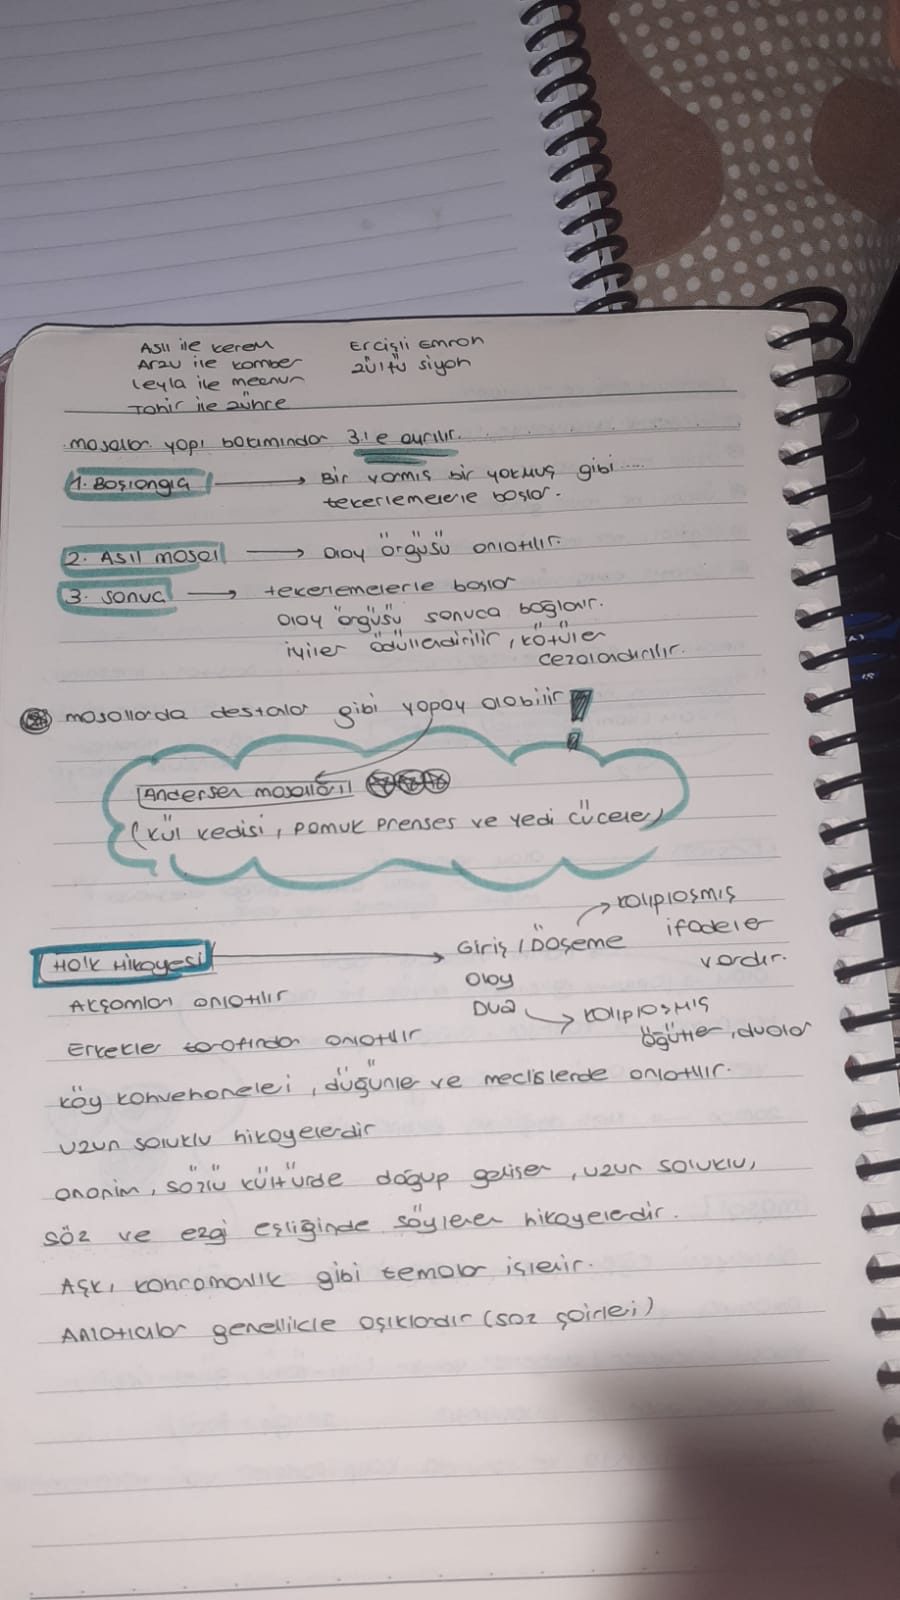 Aslı ile Kerem
Arzu ile Kamber
Leyla ile Mecnun
Tahir ile Zühre
Ercişli Emrah
Zülfü Siyah
Masallar yapı bakımından 3'e ayrılır.
1. Başlangıç → Bir varmış bir yokmuş gibi....
tekerlemelerle başlar.
2. Asıl masal → olay örgüsü anlatılır.
3. sonuç → tekerlemelerle başlar
olay örgüsü sonuca bağlanır.
iyiler ödüllendirilir, kötüler
cezalandırılır.
masallarda destanlar gibi yapay olabilir!
Andersen masalları
(Kül kedisi, Pamuk Prenses ve Yedi Cüceler)
Halk Hikayesi → Giriş / Döşeme → kalıplaşmış
ifadeler
vardır.
Olay
Dua → kalıplaşmış
öğütler, dualar
Akşamları anlatılır
Erkekler tarafından anlatılır
köy kahvehaneleri, düğünler ve meclislerde anlatılır.
uzun soluklu hikayelerdir
anonim, sözlü kültürde doğup gelişen, uzun soluklu,
söz ve ezgi eşliğinde söylenen hikayelerdir.
Aşk, kahramanlık gibi temalar işlenir.
Anlatıcılar genellikle aşıklardır (saz şairleri)